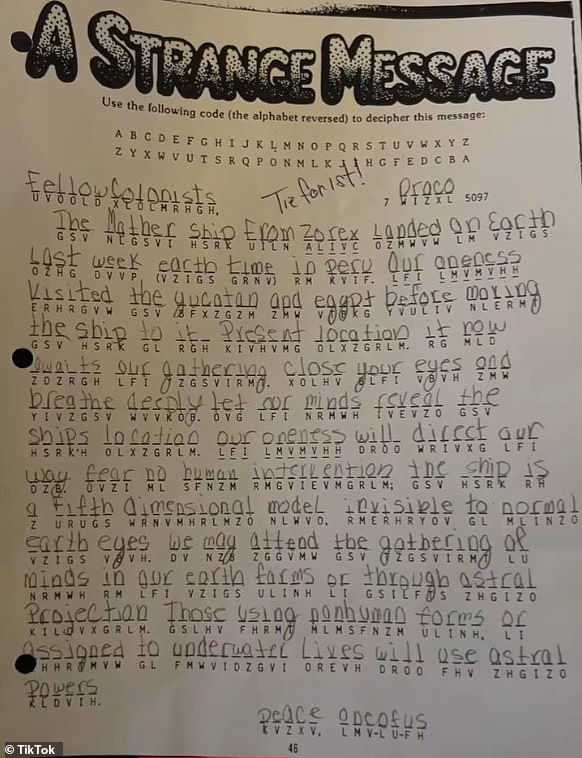 A STRANGE MESSAGE
Use the following code (the alphabet reversed) to decipher this message:
A B C D E F G H I J K L M N O P Q R S T U V W X Y Z
Z Y X W V U T S R Q P O N M L K J I H G F E D C B A
Tie for 1st!
FellowColonists Draco
UVOOLD XLOLMRHGH, 7 WIZXL 5097
The Mother ship From Zorex Landed on Earth
GSV NLGSVI HSRK UILN ALIVC OZMWVW LM VZIGS
Last week earth time in peru Our oneness
OZHG DVVP (VZIGS GRNV) RM KVIF. LFI LMVMVHH
Visited the yucatan and egypt before moving
ERHRGVW GSV BFXZGZM ZMW VTBKG YVULIV NLERMT
the ship to it Present location it now
GSV HSRK GL RGH KIVHVMG OLXZGRLM. RG MLD
awaits our gathering close your eyes and
ZDZRGH LFI TZGSVIRMT. XOLHV BLFI VBVH ZMW
breathe deeply let our minds reveal the
YIVZGSV WVVKOB. OVG LFI NRMWH IVEVZO GSV
ships location our oneness will direct our
HSRK'H OLXZGRLM. LFI LMVMVHH DROO WRIVXG LFI
way fear no human intervention the ship is
DZB. UVZI ML SFNZM RMGVIEVMGRLM; GSV HSRK RH
a fifth dimensional model invisible to normal
Z URUGS WRNVMHRLMZO NLWVO, RMERHRYOV GL MLINZO
earth eyes we may attend the gathering of
VZIGS VBVH. DV NZB ZGGVMW GSV TZGSVIRMT LU
minds in our earth forms or through astral
NRMWH RM LFI VZIGS ULINH LI GSILFTS ZHGIZO
Projection Those using nonhuman forms or
KILQVXGRLM. GSLHV FHRMT MLMSFNZM ULINH, LI
assigned to underwater Lives will use astral
ZHHRTMVW GL FMWVIDZGVI OREVH DROO FHV ZHGIZO
Powers
KLDVIH.
peace oneofus
KVZXV, LMV-LU-FH
46
© TikTok